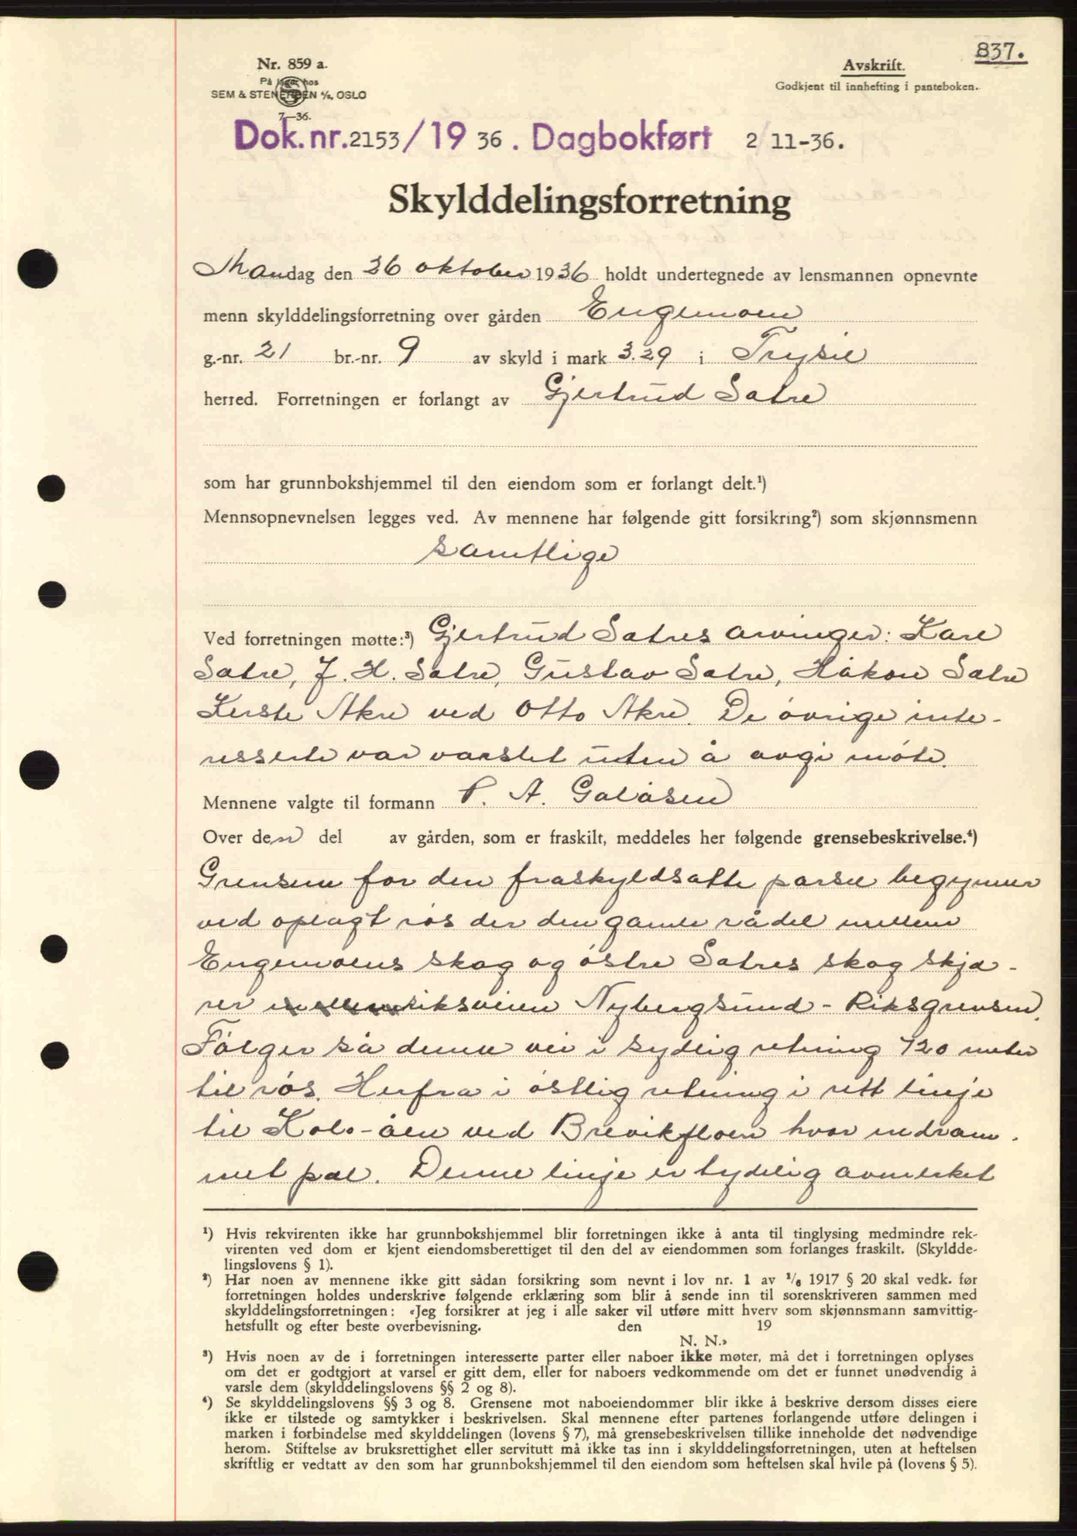 837.
Nr. 859 a.
På lager hos
SEM & STENERSEN A/S, OSLO
7—36.
Avskrift.
Godkjent til innhefting i panteboken.
Dok.nr. 2153/1936. Dagbokført 2/11-36.
Skylddelingsforretning
Mandag den 26 oktober 1936 holdt undertegnede av lensmannen opnevnte
menn skylddelingsforretning over gården Engemoen
g.-nr. 21 br.-nr. 9 av skyld i mark 3.29 i Trysil
herred. Forretningen er forlangt av Gjertrud Satre
som har grunnbokshjemmel til den eiendom som er forlangt delt.¹)
Mennsopnevnelsen legges ved. Av mennene har følgende gitt forsikring²) som skjønnsmenn
samtlige
Ved forretningen møtte:³) Gjertrud Satres arvinger: Kare
Satre, J. H. Satre, Gustav Satre, Håkon Satre
Kerste Akre ved Otto Akre. De øvrige inte-
resserte var varslet uten å avgi møte.
Mennene valgte til formann P. A. Galåsen
Over den del av gården, som er fraskilt, meddeles her følgende grensebeskrivelse.⁴)
Grensen for den fraskyldsatte parsel begynner
ved oplagt røs der den gamle rådel mellem
Engemoens skog og østre Satres skog skjæ-
rer riksveien Nybergsund - Riksgrensen.
Følger så denne vei i sydlig retning 720 meter
til røs. Herfra i østlig retning i rett linje
til Kolo-åen ved Brevikfloen hvor nedram-
met pæl. Denne linje er tydelig avmerket
¹) Hvis rekvirenten ikke har grunnbokshjemmel blir forretningen ikke å anta til tinglysing medmindre rek-
virenten ved dom er kjent eiendomsberettiget til den del av eiendommen som forlanges fraskilt. (Skyldde-
lingslovens § 1).
²) Har noen av mennene ikke gitt sådan forsikring som nevnt i lov nr. 1 av ¹/₆ 1917 § 20 skal vedk. før
forretningen holdes underskrive følgende erklæring som blir å sende inn til sorenskriveren sammen med
skylddelingsforretningen: «Jeg forsikrer at jeg i alle saker vil utføre mitt hverv som skjønnsmann samvittig-
hetsfullt og efter beste overbevisning. den 19
N. N.»
³) Hvis noen av de i forretningen interesserte parter eller naboer ikke møter, må det i forretningen oplyses
om det er godtgjort at varsel er gitt dem, eller for naboers vedkommende om det er funnet unødvendig å
varsle dem (skylddelingslovens §§ 2 og 8).
⁴) Se skylddelingslovens §§ 3 og 8. Grensene mot naboeiendommer blir ikke å beskrive dersom disses eiere
ikke er tilstede og samtykker i beskrivelsen. Skal mennene efter partenes forlangende utføre delingen i
marken i forbindelse med skylddelingen (lovens § 7), må grensebeskrivelsen tillike inneholde det nødvendige
herom. Stiftelse av bruksrettighet eller servitutt må ikke tas inn i skylddelingsforretningen, uten at heftelsen
skriftlig er vedtatt av den som har grunnbokshjemmel til den eiendom som heftelsen skal hvile på (lovens § 5).